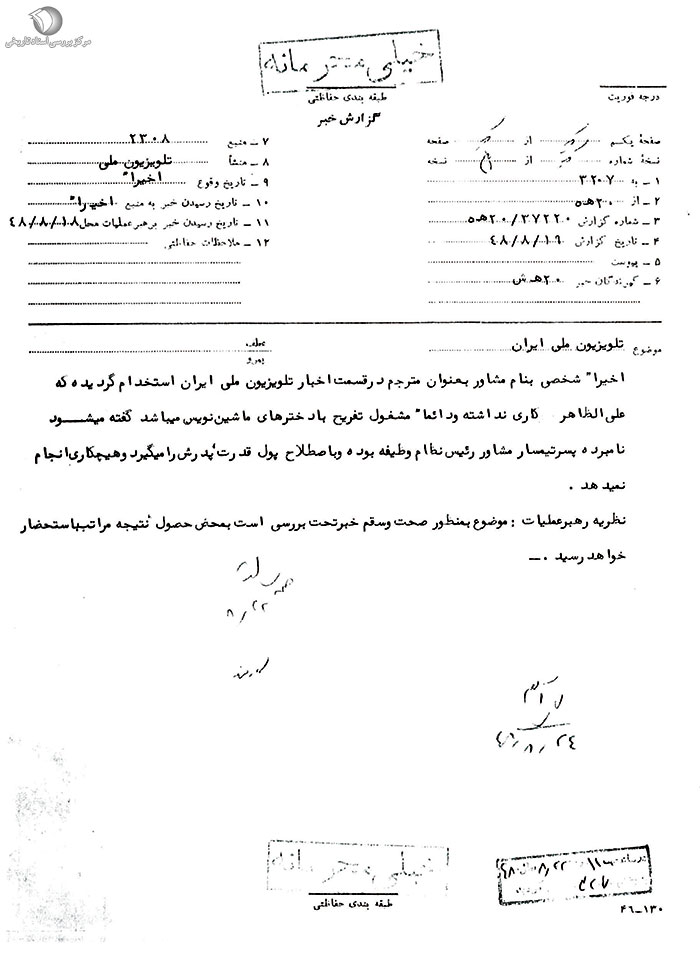 مرکز بررسی اسناد تاریخی
خیلی محرمانه
طبقه بندی حفاظتی
درجه فوریت
گزارش خبر
صفحهٔ یکم از صفحه
نسخهٔ شماره از نسخه
۱ ــ به ۳۲۰۷
۲ ــ از ۲۰هـ۵
۳ ــ شماره گزارش ۳۷۲۲۰/۲۰هـ۵
۴ ــ تاریخ گزارش ۴۸/۸/۱۹
۵ ــ پیوست
۶ ــ گیرندگان خبر ۲۰هـ ش
۷ ــ منبع ۲۳۰۸
۸ ــ منشأ تلویزیون ملی
۹ ــ تاریخ وقوع اخیراً
۱۰ ــ تاریخ رسیدن خبر به منبع اخیراً
۱۱ ــ تاریخ رسیدن خبر برهبر عملیات محل ۴۸/۸/۱۸
۱۲ ــ ملاحظات حفاظتی
موضوع تلویزیون ملی ایران
عطف
پیرو
اخیراً شخصی بنام مشاور بعنوان مترجم در قسمت اخبار تلویزیون ملی ایران استخدام گردیده که
علی الظاهر کاری نداشته و دائماً مشغول تفریح با دخترهای ماشین نویس میباشد گفته میشـــود
نامبرده پسر تیمسار مشاور رئیس نظام وظیفه بوده و باصطلاح پول قدرت پدرش را میگیرد و هیچکاری انجام
نمیدهد .
نظریه رهبر عملیات : موضوع بمنظور صحت و سقم خبر تحت بررسی است بمحض حصول نتیجه مراتب باستحضار
خواهد رسید .ــ
۸/۲۲
۴۸/۸/۲۴
خیلی محرمانه
طبقه بندی حفاظتی
۴۶ــ۱۳۰